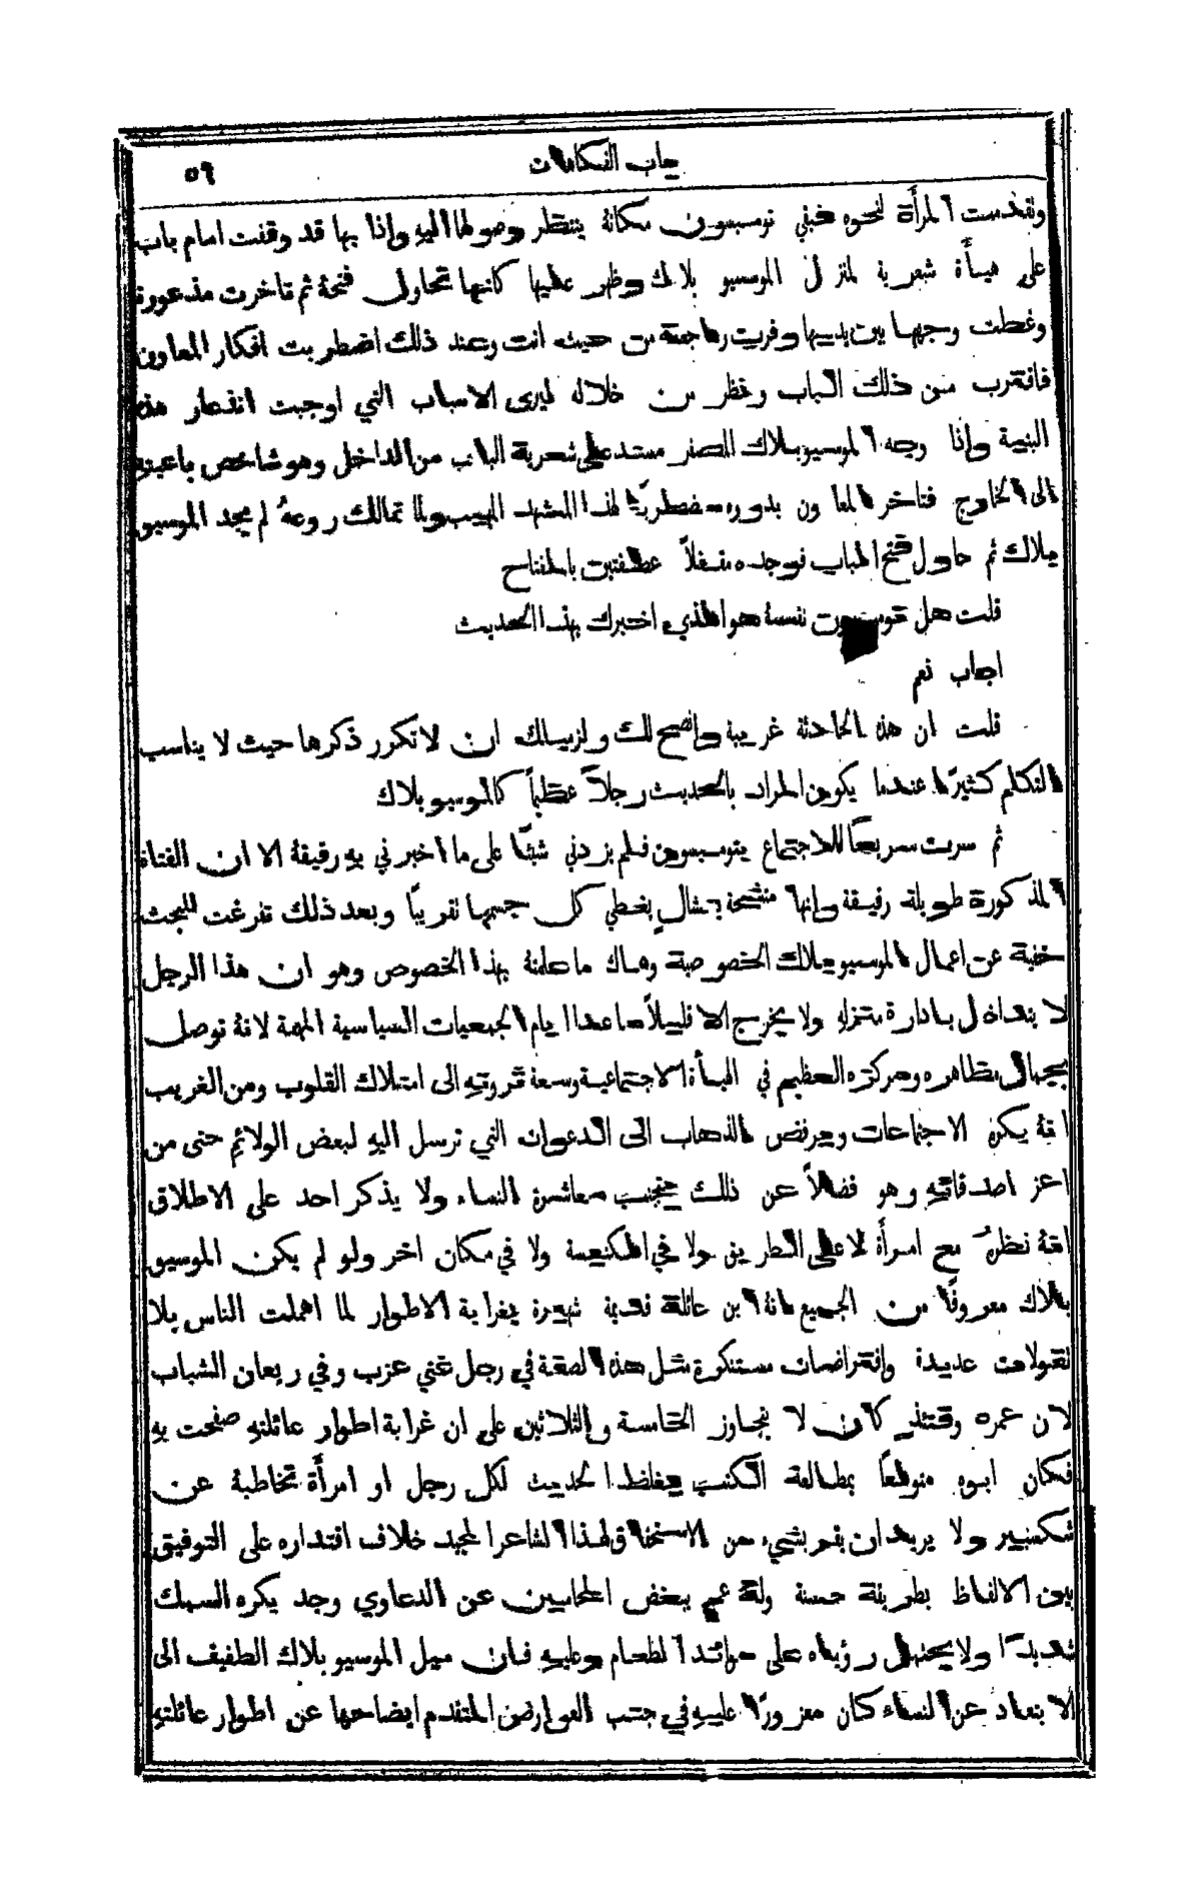 باب الفكاهات ٥٩
وتقدمت المرأة نحوه فبقي تومبسون مكانهُ ينتظر وصولها اليهِ واذا بها قد وقفت امام باب
على هيأة شعرية لمنزل الموسيو بلاك وظهر عليها كانها تحاول فتحهُ ثم تاخرت مذعورة
وغطت وجهها بين يديها وفرت راجعة من حيث اتت وعند ذلك اضطربت افكار المعاون
فاقترب من ذلك الباب ونظر من خلاله ليرى الاسباب التي اوجبت انذعار هذه
البنية واذا وجه الموسيو بلاك المصفر مستند على شعرية الباب من الداخل وهو شاخص باعينهِ
الى الخارج فتاخر المعاون بدوره مضطربًا لهذا المشهد المهيب ولما تمالك روعهُ لم يجد الموسيو
بلاك ثم حاول فتح الباب فوجده مقفلاً بالمفتاح
قلت هل تومبسون نفسهُ هو الذي اخبرك بهذا الحديث
اجاب نعم
قلت ان هذه الحادثة غريبة وانصح لك ولزميلك ان لا تكرر ذكرها حيث لا يناسب
التكلم كثيرًا عندما يكون المراد بالحديث رجلاً عظيمًا كالموسيو بلاك
ثم سرت سريعًا للاجتماع بتومبسون فلم يزدني شيئًا على ما اخبرني بهِ رفيقهُ الا ان الفتاة
المذكورة طويلة رفيعة وانها متشحة بشال يغطي كل جسمها تقريبًا وبعد ذلك تفرغت للبحث
خفية عن اعمال الموسيو بلاك الخصوصية وهاك ما علمتهُ بهذا الخصوص وهو ان هذا الرجل
لا يتداخل بادارة منزلهِ ولا يخرج الا قليلاً ما عدا ايام الجمعيات السياسية المهمة لانهُ توصل
بجمال مظاهره ومركزه العظيم في الهيأة الاجتماعية وسعة ثروتهِ الى امتلاك القلوب ومن الغريب
انهُ يكره الاجتماعات ويرفض الذهاب الى الدعوات التي ترسل اليهِ لبعض الولائم حتى من
اعز اصدقائهِ وهو فضلاً عن ذلك يتجنب معاشرة النساء ولا يذكر احد على الاطلاق
انهُ نظرهُ مع امرأة لا على الطريق ولا في الكنيسة ولا في مكان اخر ولو لم يكن الموسيو
بلاك معروفًا من الجميع بانهُ ابن عائلة قديمة شهيرة بغرابة الاطوار لما اهملت الناس بلا
تقولات عديدة وافتراضات مستنكرة مثل هذه الصفة في رجل غني عزب وفي ريعان الشباب
لان عمره وقتئذٍ كان لا يتجاوز الخامسة والثلاثين على ان غرابة اطوار عائلتهِ صفحت بهِ
فكان ابوه متولعًا بمطالعة الكتب يغلظ الحديث لكل رجل او امرأة تخاطبهُ عن
شكسبير ولا يريد ان يقر بشيء من الاستحقاق لهذا الشاعر المجيد خلاف اقتداره على التوفيق
بين الالفاظ بطريقة حسنة ولهُ عم يبغض المحامين عن الدعاوي وجد يكره السمك
شديدًا ولا يحتمل رؤياه على موائد الطعام وعليهِ فان ميل الموسيو بلاك الطفيف الى
الابتعاد عن النساء كان معزورًا عليهِ في جنب العوارض المتقدم ايضاحها عن اطوار عائلتهِ